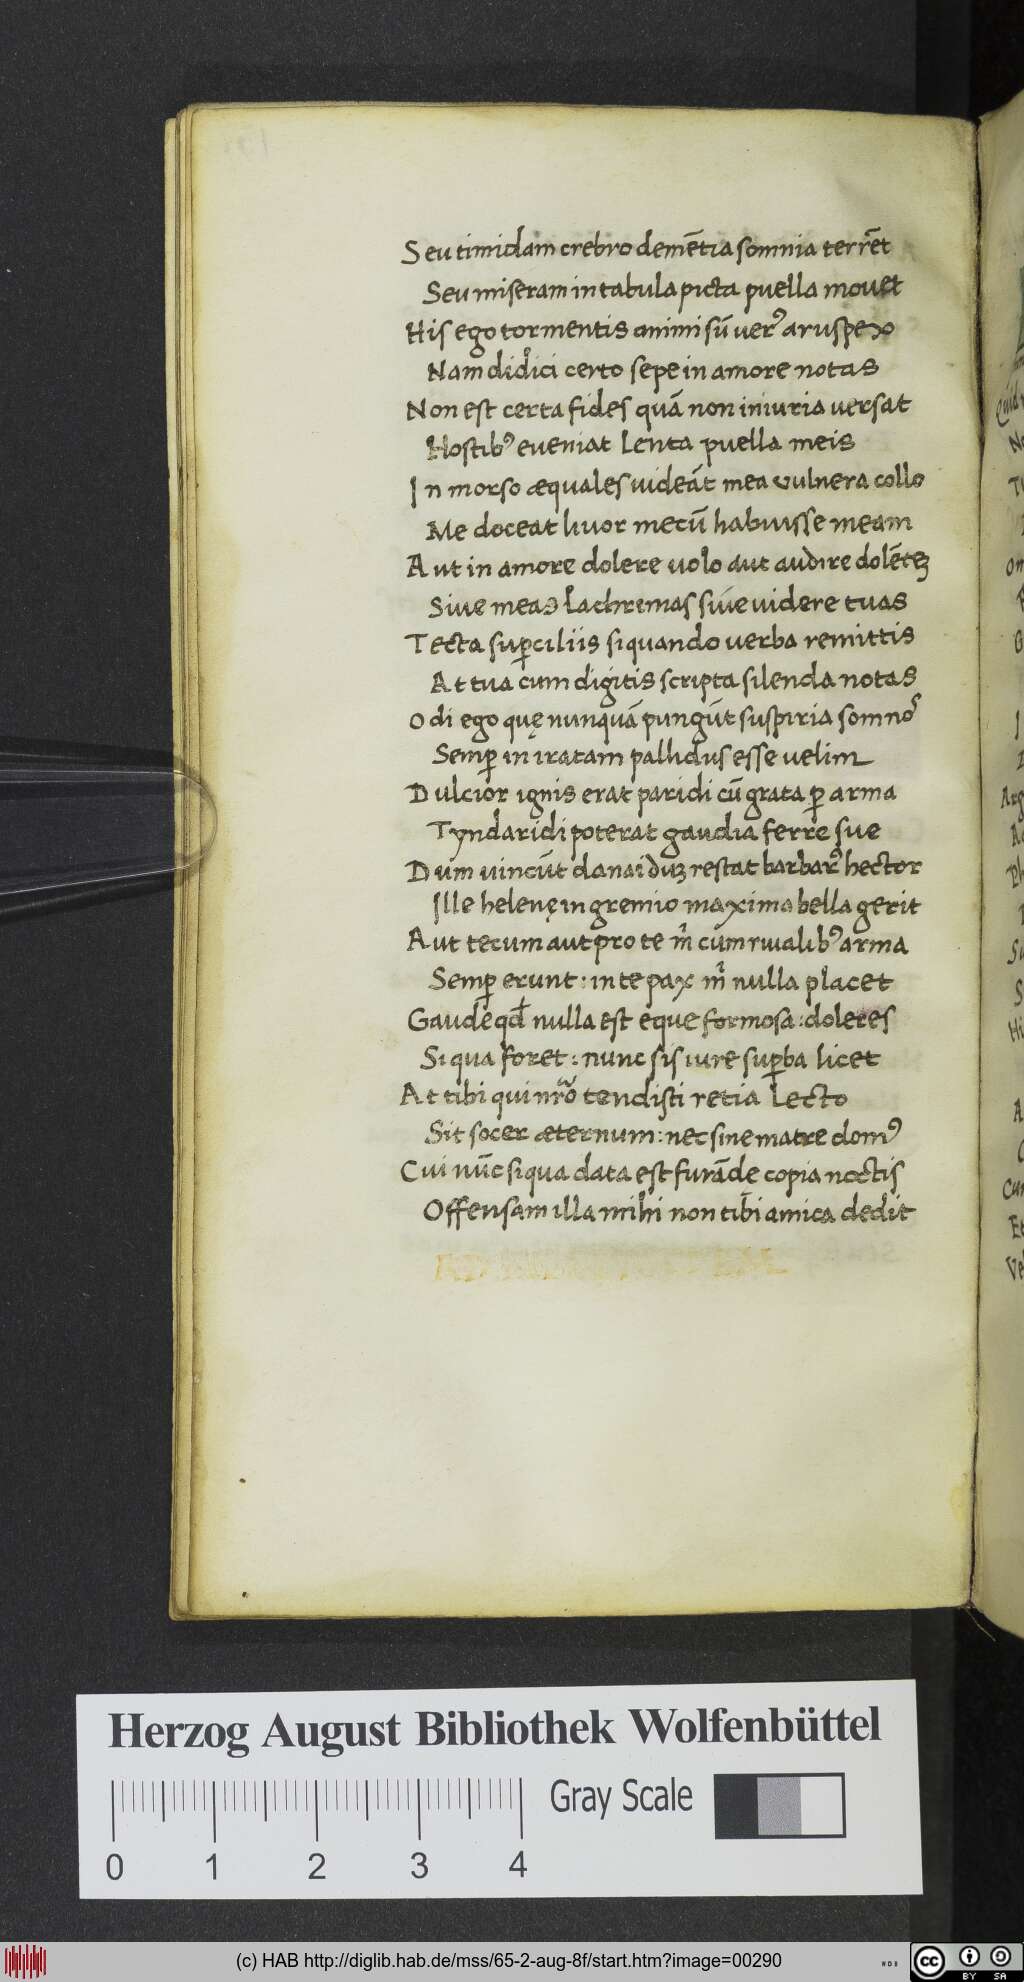 Seu timidam crebro demētia somnia terrēt
Seu miseram in tabula picta puella mouet
His ego tormentis animi sū ver⁹ aruspex
Nam didici certo sepe in amore notas
Non est certa fides quā non iniuria versat
Hostib⁹ eveniat lenta puella meis
In morso æquales uideāt mea vulnera collo
Me doceat livor mecū habuisse meam
Aut in amore dolere volo aut audire dolēteʒ
Sive meas lachrimas sive videre tuas
Tecta suꝑciliis siquando verba remittis
At tua cum digitis scripta silenda notas
Odi ego quę nunquā pungūt suspiria somnoˢ
Semꝑ in iratam pallidus esse velim
Dulcior ignis erat paridi cū grata ꝑ arma
Tyndaridi poterat gaudia ferre sue
Dum vincūt danai duʒ restat barbar⁹ hector
Ille helenę in gremio maxima bella gerit
Aut tecum aut pro te m̊ cūm rivalib⁹ arma
Semꝑ erunt: in te pax m̊ nulla placet
Gaude qd̄ nulla est eque formosa: doleres
Si qua foret: nunc sis iure suꝑba licet
At tibi qui nr̄o tendisti retia lecto
Sit socer æternum: nec sine matre dom⁹
Cui nūc siqua data est furāde copia noctis
Offensam illa mihi non tibi amica dedit
Herzog August Bibliothek Wolfenbüttel
0 1 2 3 4
Gray Scale
(c) HAB http://diglib.hab.de/mss/65-2-aug-8f/start.htm?image=00290
cc BY SA